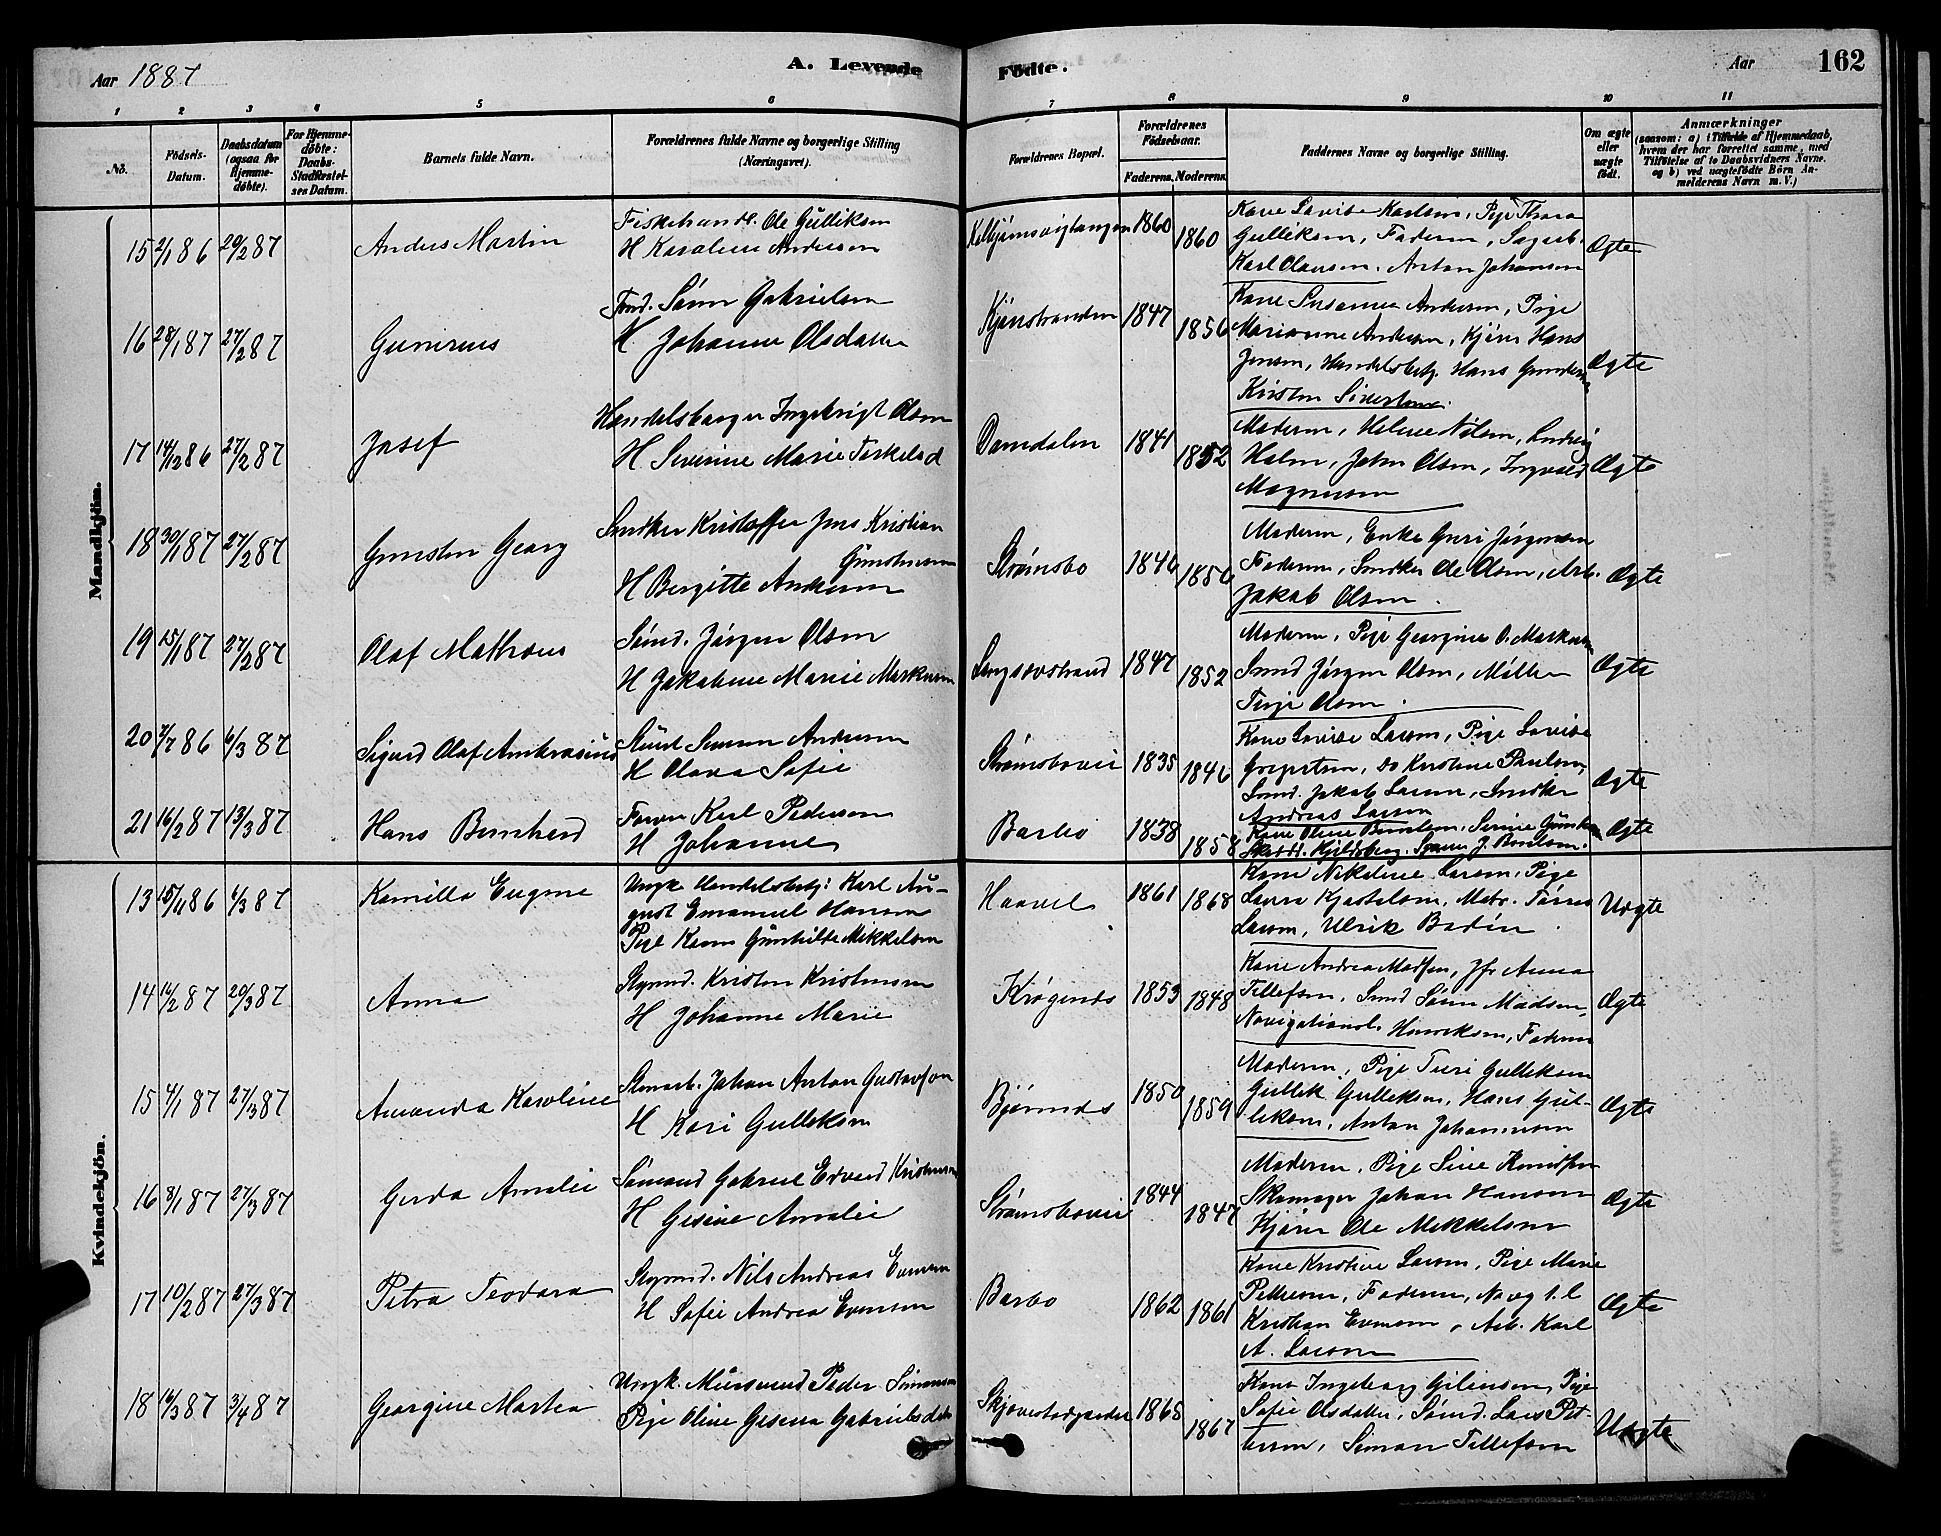 Aar 1887
A. Levende Fødte.
Aar
162
1 2 3 4 5 6 7 8 9 10 11
No.
Fødsels-Datum.
Daabsdatum (ogsaa for Hjemmedøbte).
For Hjemmedøbte: Daabs-Stadfæstelses Datum.
Barnets fulde Navn.
Forældrenes fulde Navne og borgerlige Stilling (Næringsvei).
Forældrenes Bopæl.
Forældrenes Fødselsaar.
Faderens. Moderens.
Faddernes Navne og borgerlige Stilling.
Om ægte eller uægte født.
Anmærkninger
(saasom: a) i Tilfælde af Hjemmedaab, hvem der har forrettet samme, med Tilføielse af to Daabsvidners Navne. og b) ved uægtefødte Børn Anmelderens Navn m. V.)
Mandkjøn.
15 2/1 86 20/2 87 Anders Martin
Fiskehandl. Ole Gulliksen
H Karoline Andersen
1860 1860
Kone Lovise Karlsen, Pige Thara
Gulliksen, Faderen, Sagarb.
Karl Olausen. Anton Johansen
Ægte
16 28/1 87 27/2 87 Gunerius
Tmd. Sørn Gabrielsen
H. Johanne Olsdatter
Kjønstranden 1847 1856
Kone Susanne Andersen, Pige
Marianne Andersen, Kjørn Hans
Jensen, Handelsbetj. Hans Gundersen
Kristen Sivertsen.
Ægte
17 14/12 86 27/2 87 Josef
Handelsborger Ingebrigt Olsen
H Severine Marie Terkelsd
Damdalen 1841 1852
Moderen, Helene Nilsen, Ludvig
Holm, John Olsen, Ingvald
Magnusen
Ægte
18 30/1 87 27/2 87 Gunsten Georg
Snedker Kristoffer Jens Kristian
Gunstensen
H Bergitte Andersen
Strømsbo 1846 1856
Moderen, Enke Guri Jørgensen
Faderen, Snedker Ole Olsen, Arb.
Jakob Olsen.
Ægte
19 15/1 87 27/2 87 Olaf Mathæus
Sømd. Jørgen Olsen
H Jakobine Marie Markusen
Langsævstrand 1847 1852
Moderen, Pige Georgine O. Markusen
Smd Jørgen Olsen, Møller
Terje Olsen.
Ægte
20 7/7 86 6/3 87 Sigurd Olaf Ambrosius
Simon Andersen
H Olava Sofie
Strømsbovei 1835 1846
Kone Lovise Larsen, Pige Lovise
Gregersen, do Kristine Paulsen,
Smd. Jakob Larsen, Snedker
Andreas Larsen
Ægte
21 16/2 87 13/3 87 Hans Bernhard
Farver Karl Pedersen
H Johanne
Barbo 1838 1858
Ægte
Kvindekjøn.
13 15/11 86 6/3 87 Kamilla Eugene
Ungk. Handelsbetj: Karl Au-
gust Emanuel Hansen
Pige Karen Gunhilde Mikkelsen
Haavel 1861 1868
Kone Nikoline Larsen, Pige
Laura Kjostelsen, Matr. Tørres
Larsen, Ulrik Bodin.
Uægte
14 16/2 87 20/3 87 Anna
Stymd. Kristen Kristensen
H Johanne Marie
Krøgenes 1853 1848
Kone Andrea Madsen, Jfr Anna
Tellefsen, Smd Søren Madsen,
Navigationsl. Henriksen, Faderen
Ægte
15 4/1 87 27/3 87 Amanda Karoline
Stenarb. Johan Anton Gustavson
H Kari Gulleksen
Bjørnnes 1850 1859
Moderen, Pige Turi Gulleksen
Gullek Gulleksen, Hans Gul-
leksen, Anton Johannesen
Ægte
16 8/1 87 27/3 87 Gerda Amalie
Sømand Gabriel Edvard Kristensen
H Gesine Amalie
Strømsbovei 1844 1847
Moderen, Pige Sine Knudsen
Skomager Johan Hansen
Kjører Ole Mikkelsen
Ægte
17 10/2 87 27/3 87 Petra Teodora
Stymd. Nils Andreas Evensen
H Sofie Andrea Evensen
Barbo 1862 1861
Kone Kristine Larsen, Pige Marie
Pettersen, Faderen, Navg. l.
Kristian Evensen, Arb. Karl
A. Larsen
Ægte
18 16/3 87 3/4 87 Georgine Martea
Ungk. Mursvend Peder Simonsen
Pige Oline Gesena Gabrielsdatter
1865 1867
Kone Ingeborg Gilensen, Pige
Sofie Olsdatter, Sømd. Lars Pet-
tersen, Simon Tellefsen
Uægte